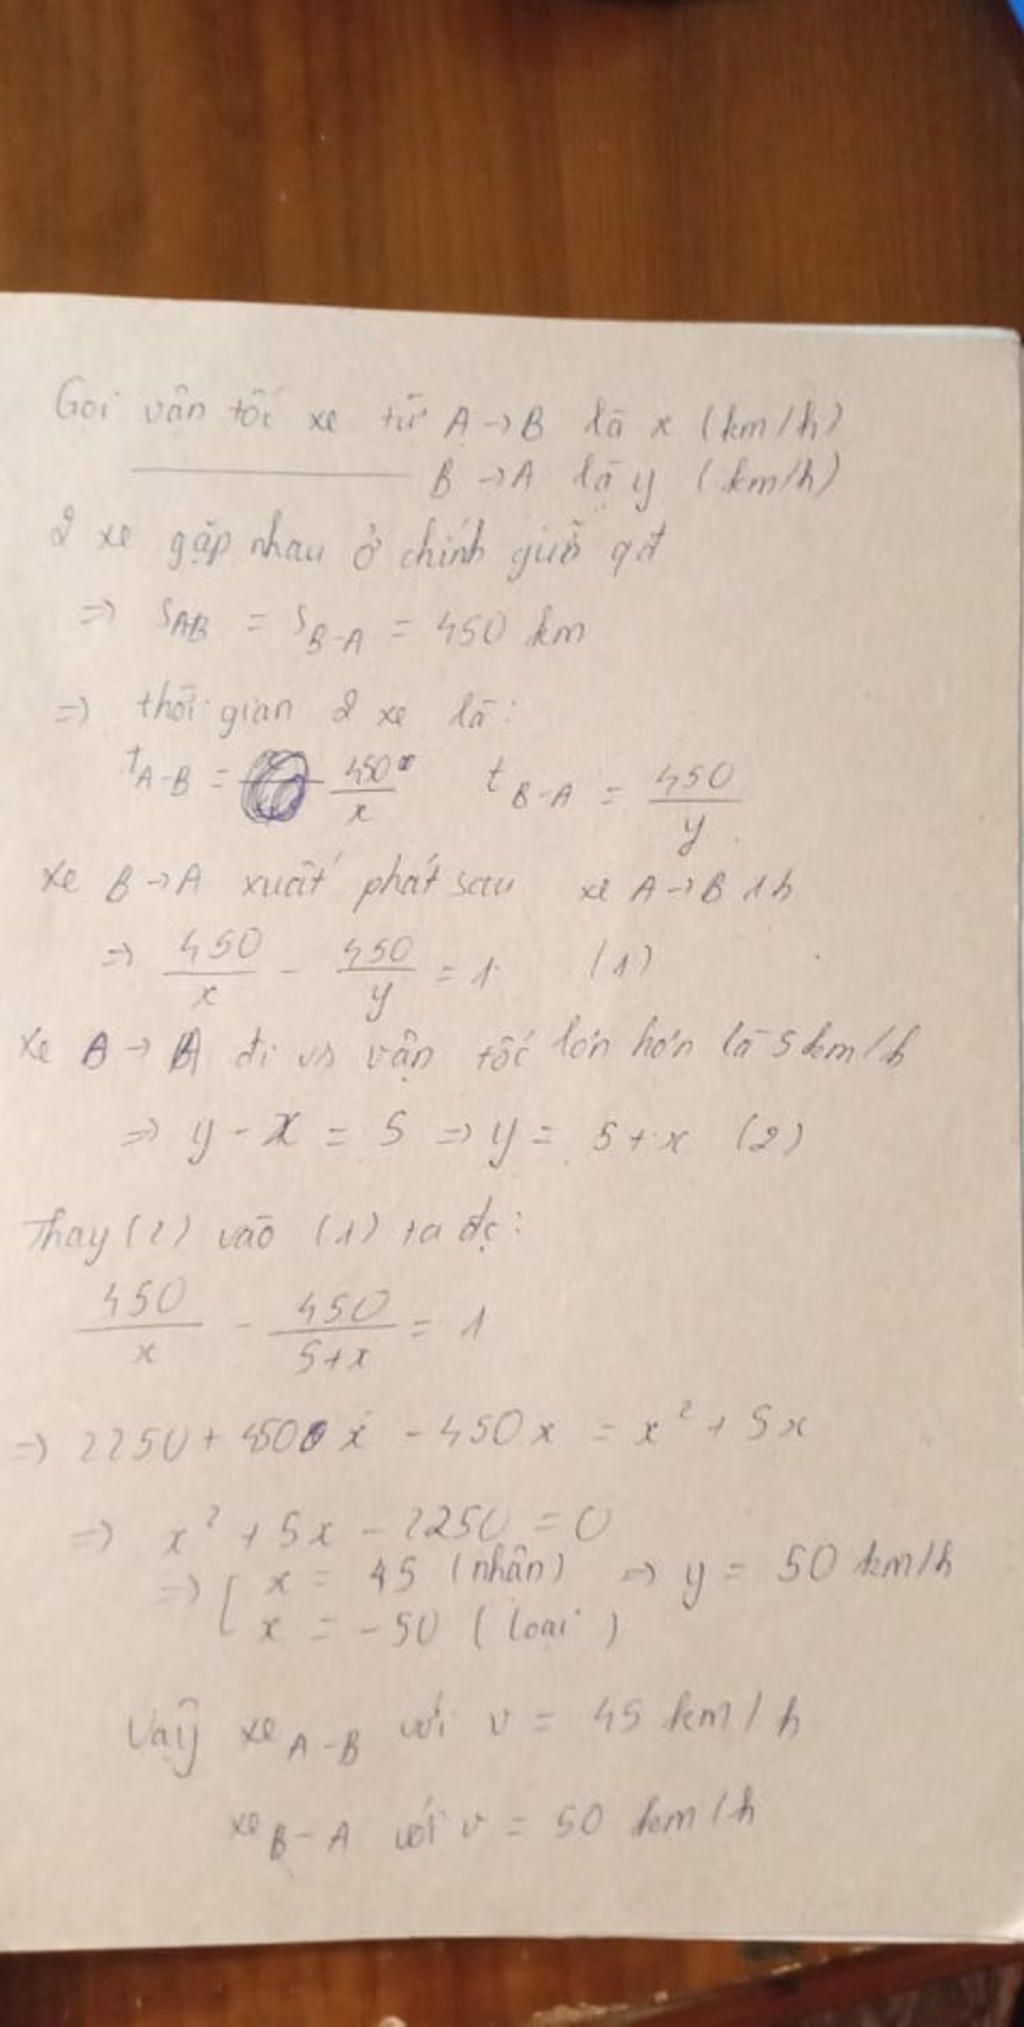 Gọi vận tốc xe từ A → B là x (km/h)
B → A là y (km/h)
2 xe gặp nhau ở chính giữa qđ
=> S_AB = S_B-A = 450 km
=> thời gian 2 xe là:
t_A-B = 450/x t_B-A = 450/y
xe B → A xuất phát sau xe A → B 1h
=> 450/x - 450/y = 1 (1)
xe B → A đi vs vận tốc lớn hơn là 5 km/h
=> y - x = 5 => y = 5 + x (2)
Thay (2) vào (1) ta đc:
450/x - 450/5+x = 1
=> 2250 + 450x - 450x = x² + 5x
=> x² + 5x - 2250 = 0
=> [ x = 45 (nhận) => y = 50 km/h
x = -50 (loại)
Vậy xe A-B với v = 45 km/h
xe B-A với v = 50 km/h